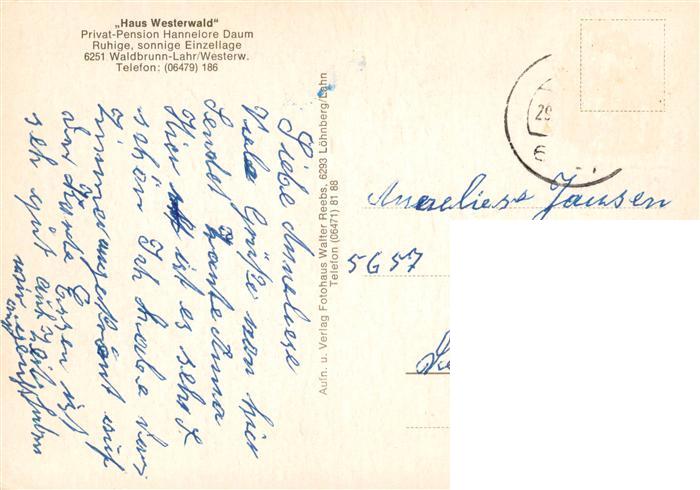 „Haus Westerwald"
Privat-Pension Hannelore Daum
Ruhige, sonnige Einzellage
6251 Waldbrunn-Lahr/Westerw.
Telefon: (06479) 186
Liebe Anneliese
Viele Grüße von hier
sendet Tante Anna
Hier ist es sehr
schön Ich habe
Zimmer
das Essen ist
sehr gut
Aufn. u. Verlag Fotohaus Walter Reebs, 6293 Löhnberg/Lahn
Telefon (06471) 81 88
29
6
Anneliese Jansen
5657